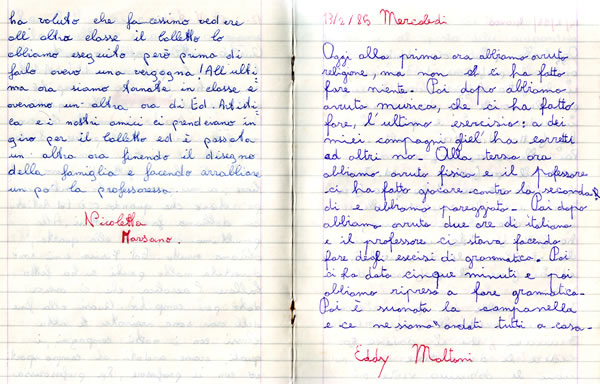 ha voluto che facessimo vedere
all' altra classe il balletto lo
abbiamo eseguito però prima di
farlo avevo una vergogna! All'ulti:
ma ora siamo tornati in classe e
avevamo un altra ora di Ed. Artisti:
ca e i nostri amici ci prendevano in
giro per il balletto ed è passata
un altra ora finendo il disegno
della famiglia e facendo arrabbiare
un po' la professoressa
Nicoletta
Marsano.
13/2/85 Mercoledì
Oggi alla prima ora abbiamo avuto
religione, ma non ci ha fatto
fare niente. Poi dopo abbiamo
avuto musica, che ci ha fatto
fare, l'ultimo esercisio: a dei
miei compagni gliel' ha corretti
ad altri no. Alla tersa ora
abbiamo avuto fisica e il pofessore
ci ha fatto giocare contro la seconda
di e abbiamo pareggiato. Poi dopo
abbiamo avuto due ore di italiano
e il professore ci stava facendo
fare degli escisi di grammatica. Poi
ci ha dato cinque minuti e poi
abbiamo ripreso a fare gramatica.
Poi è suonata la campanella
e ce ne siamo andati tutti a casa.
Eddy Maltoni